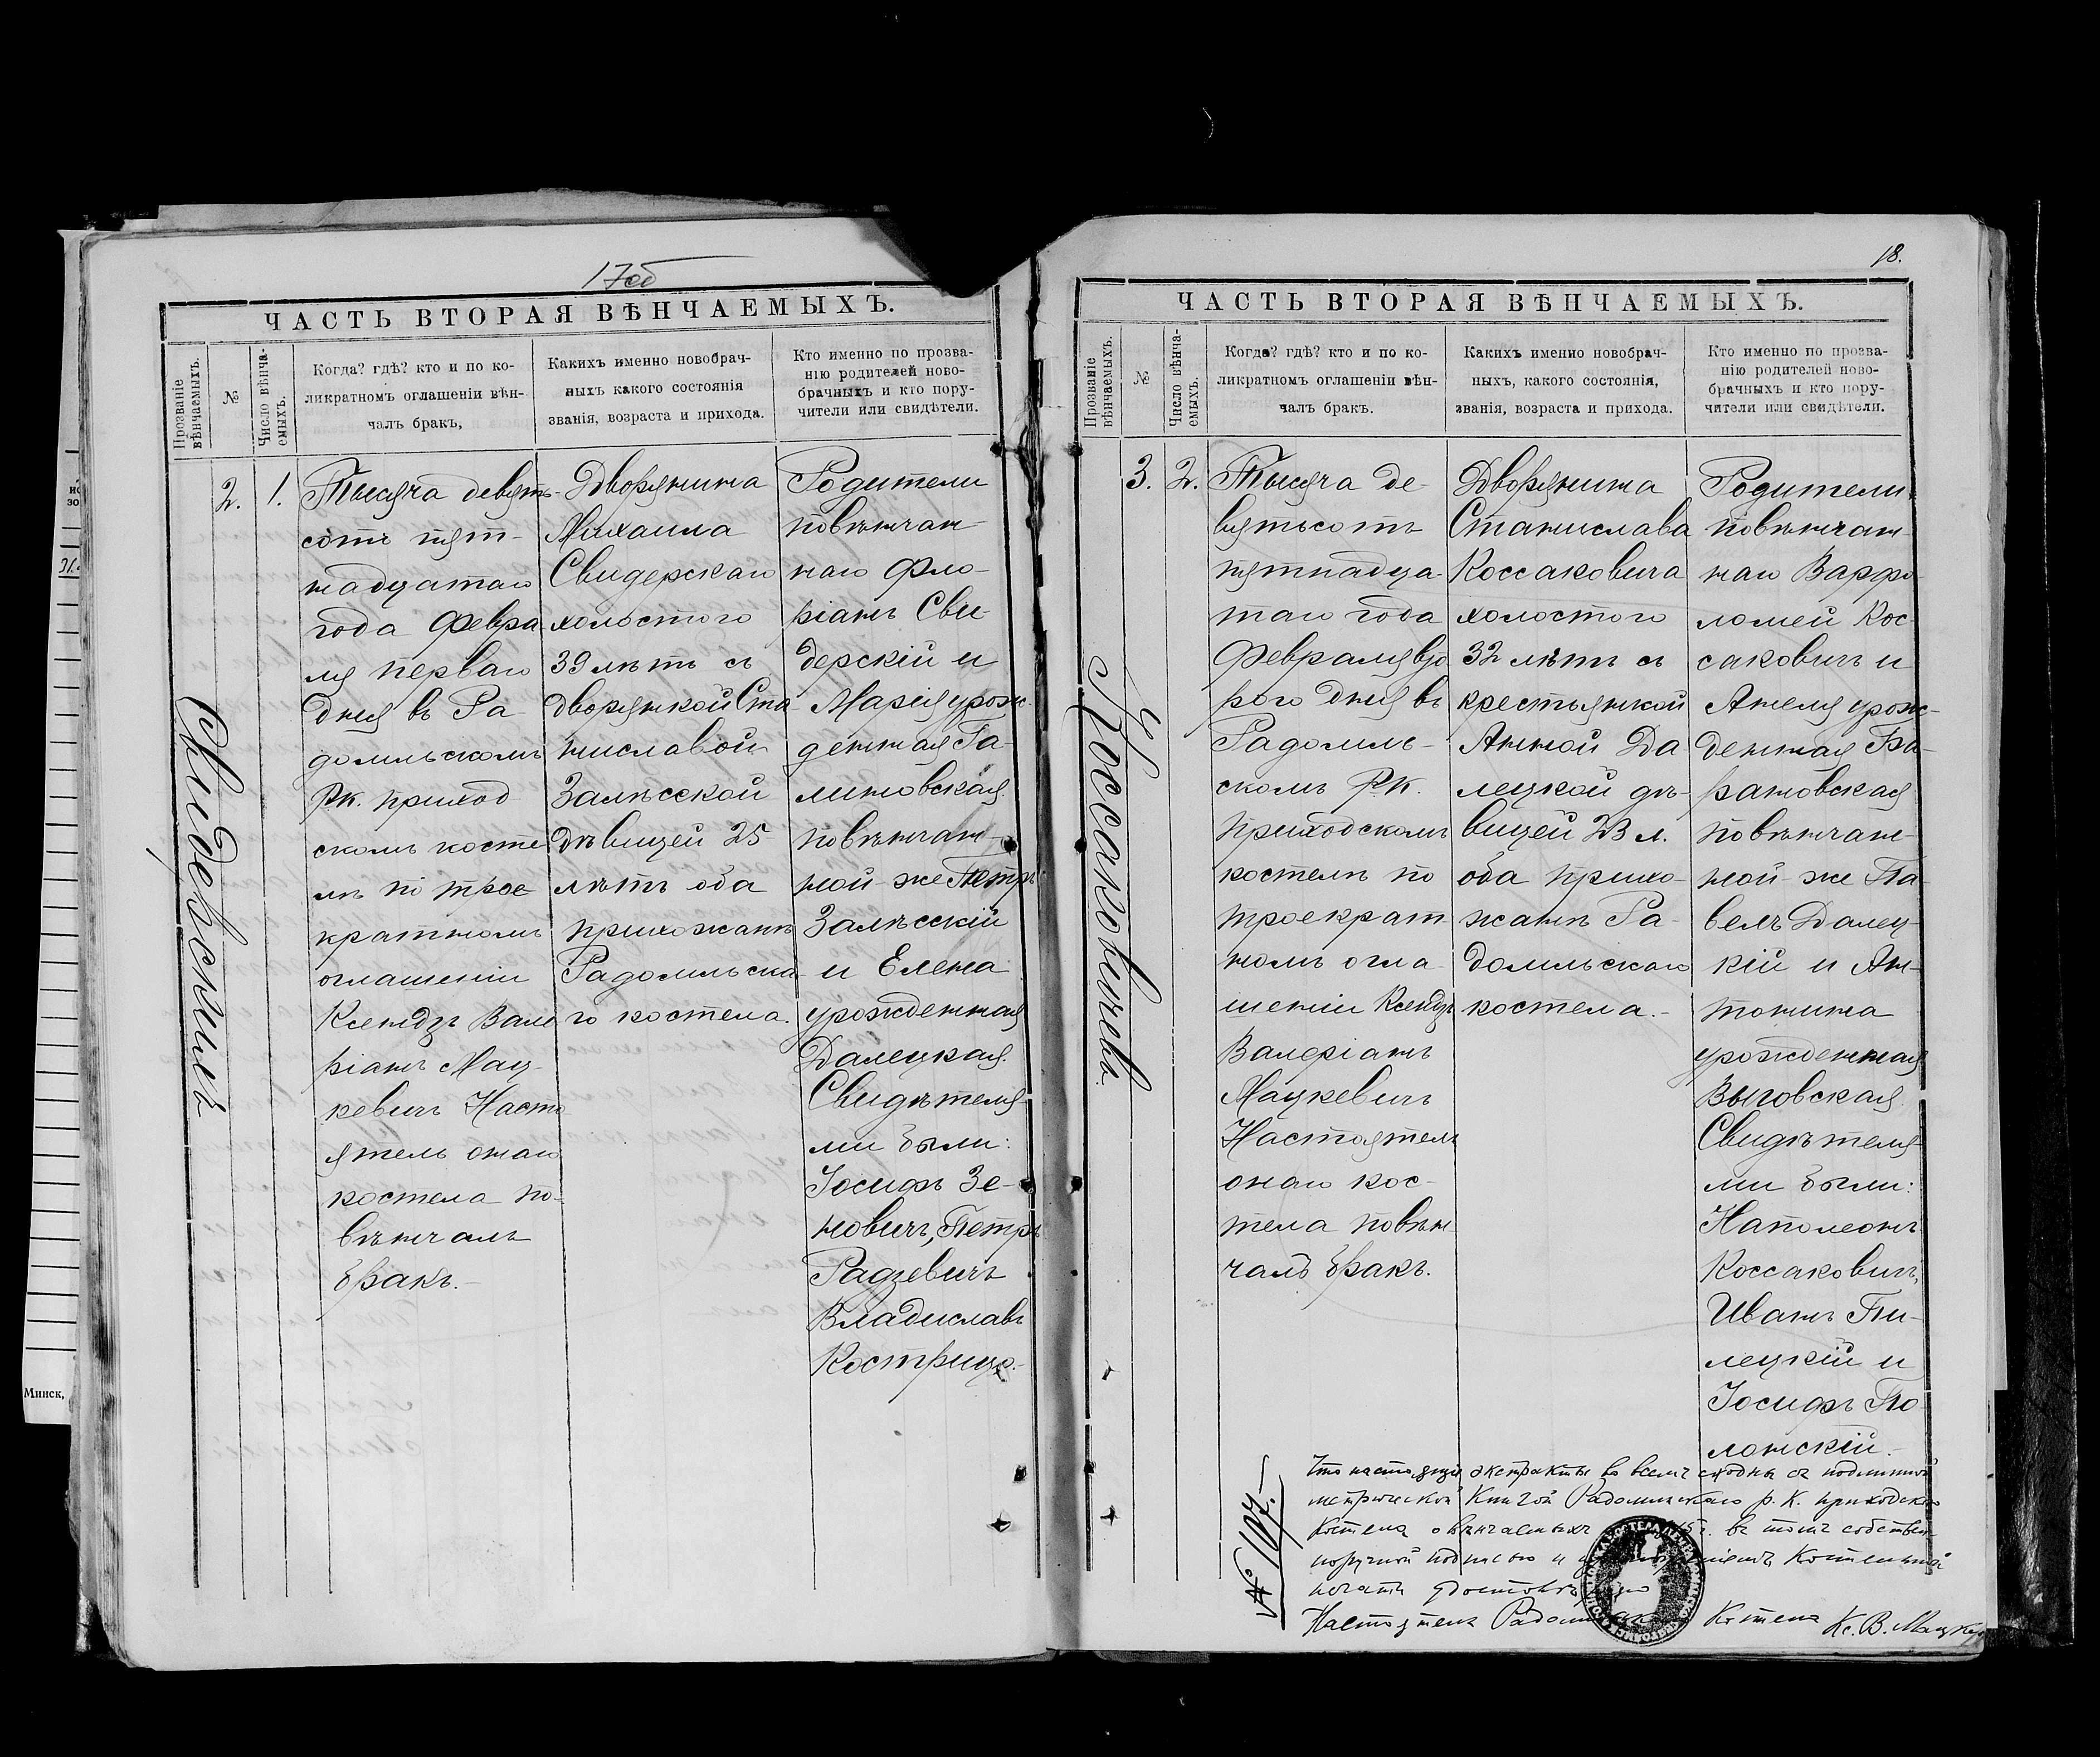 17об
ЧАСТЬ ВТОРАЯ ВѢНЧАЕМЫХЪ.
Прозваніе вѣнчаемыхъ.
№
Число вѣнча-
емыхъ.
Когда? гдѣ? кто и по ко-
ликратномъ оглашеніи вѣн-
чалъ бракъ,
Какихъ именно новобрач-
ныхъ какого состоянія
званія, возраста и прихода.
Кто именно по прозва-
нію родителей ново-
брачныхъ и кто пору-
чители или свидѣтели.
Свидерскихъ
2.
1.
Тысяча девять-
сотъ пят-
надцатаго
года Февра
ля перваго
дня въ Ра-
домльскомъ
Рк. приход
скомъ косте
лѣ по трое
кратномъ
оглашеніи
Ксендзъ Вале
ріанъ Мац-
кевичъ Насто
ятель онаго
костела по-
вѣнчалъ
бракъ.-
Дворянина
Михаила
Свидерскаго
холостого
39 лѣтъ съ
дворянкой Ста
ниславой
Залѣсской
дѣвицей 25
лѣтъ оба
прихожане
Радомльска
го костела.
Родители
повѣнчан-
наго Фло-
ріанъ Сви-
дерскій и
Марія урож-
денная Га-
линовская
повѣнчан-
ной же Петръ
Залѣсскій
и Елена
урожденная
Далецкая.
Свидѣтеля-
ми были:
Іосифъ Зе-
новичъ, Петръ
Радзевичъ
Владиславъ
Кострица.
18.
ЧАСТЬ ВТОРАЯ ВѢНЧАЕМЫХЪ.
Прозваніе вѣнчаемыхъ.
№
Число вѣнча-
емыхъ.
Когда? гдѣ? кто и по ко-
ликратномъ оглашеніи вѣн-
чалъ бракъ.
Какихъ именно новобрач-
ныхъ, какого состоянія,
званія, возраста и прихода.
Кто именно по прозва-
нію родителей ново-
брачныхъ и кто пору-
чители или свидѣтели.
Коссаковичевъ
3.
2.
Тысяча де-
вятьсотъ
пятнадца-
таго года
Февраля вто
рого дня въ
Радомль-
скомъ Р.К.
приходскомъ
костелѣ по
троекрат
номъ огла-
шеніи Ксендзъ
Валеріанъ
Мацкевичъ
Настоятель
онаго кос-
тела повѣн
чалъ бракъ.
Дворянина
Станислава
Коссаковича
холостого
32 лѣтъ съ
крестьянкой
Анной Да
лецкой дѣ-
вицей 23 л.
оба прихо-
жане Ра-
домльскаго
костела.-
Родители
повѣнчан-
наго Варфо-
ломей Кос
саковичъ и
Анеля урож-
денная Ба-
рановская
повѣнчан-
ной же Па-
велъ Далец-
кій и Ан-
тонина
урожденная
Выговская.
Свидѣтеля-
ми были:
Наполеонъ
Коссаковичъ,
Иванъ Пи-
лецкій и
Іосифъ По
лонскій.
№ 107.
Что настоящій экстрактъ во всемъ сходенъ съ подлинной
метрической Книгой Радомльскаго р. К. приходскаго
Костела о вѣнчаемыхъ 15г. въ томъ собствен-
норучной подписью и Костельной
печати удостовѣряю
Настоятель Костела Кс. В. Мацкевичъ
Минск,